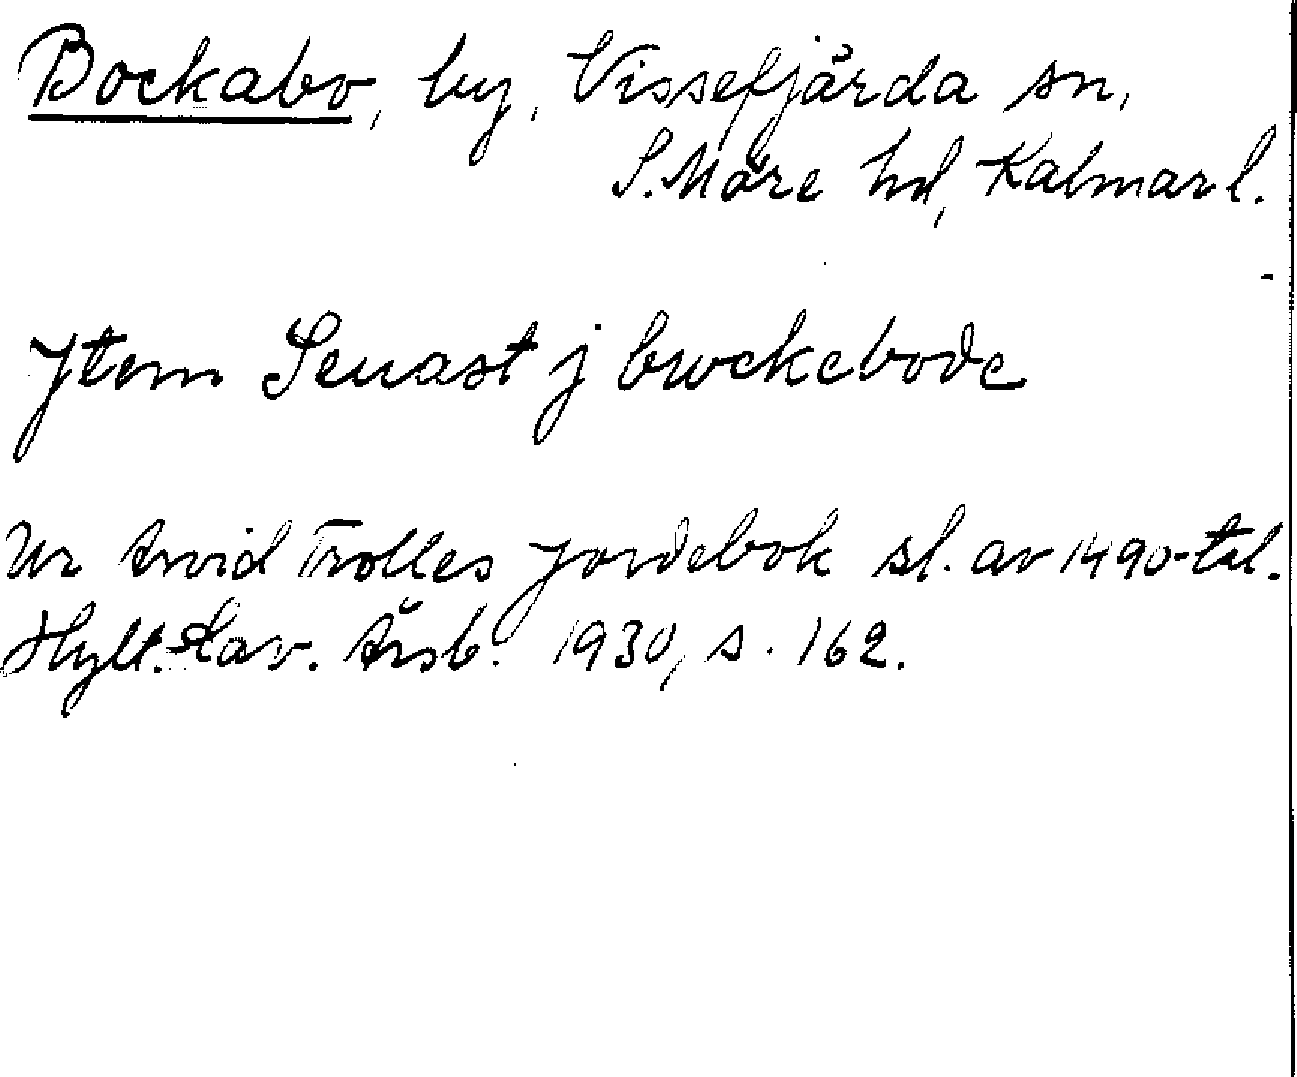 Bockabo, by, Vissefjärda sn,
S. Möre hd, Kalmar l.
Jtem Seuast j bwckebode
Ur Arvid Trolles jordebok sl. av 1490-tal.
Hylt.-Cav. Årsb. 1930, s. 162.